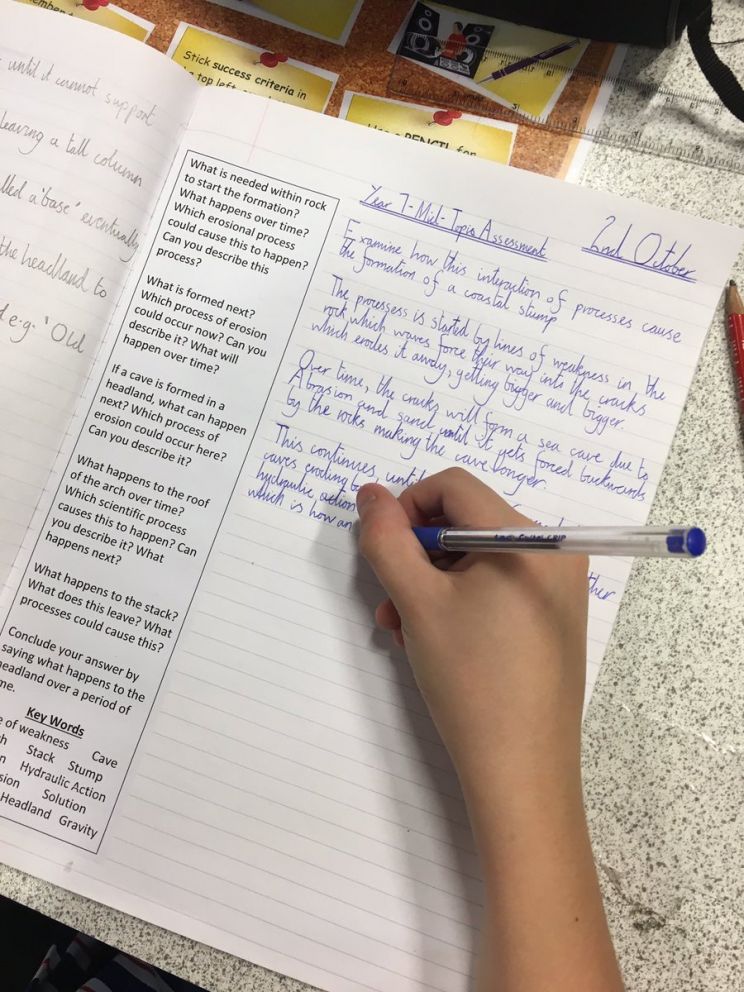 Stick success criteria in
top left
PENCIL for
until it cannot support
leaving a tall column
a 'base' eventually
the headland to
e.g. 'Old
What is needed within rock
to start the formation?
What happens over time?
Which erosional process
could cause this to happen?
Can you describe this
process?
What is formed next?
Which process of erosion
could occur now? Can you
describe it? What will
happen over time?
If a cave is formed in a
headland, what can happen
next? Which process of
erosion could occur here?
Can you describe it?
What happens to the roof
of the arch over time?
Which scientific process
causes this to happen? Can
you describe it? What
happens next?
What happens to the stack?
What does this leave? What
processes could cause this?
Conclude your answer by
saying what happens to the
headland over a period of
Key Words
of weakness Cave
Stack Stump
Hydraulic Action
Solution
Headland Gravity
Year 7 - Mid - Topic Assessment
2nd October
Examine how this interaction of processes cause
the formation of a coastal stump
The processess is started by lines of weakness in the
rock which waves force their way into the cracks
which erodes it away, getting bigger and bigger.
Over time, the cracks will form a sea cave due to
Abrasion and sand until it gets forced backwards
by the rocks making the cave longer.
This continues, until
caves eroding
hydraulic action
which is how an